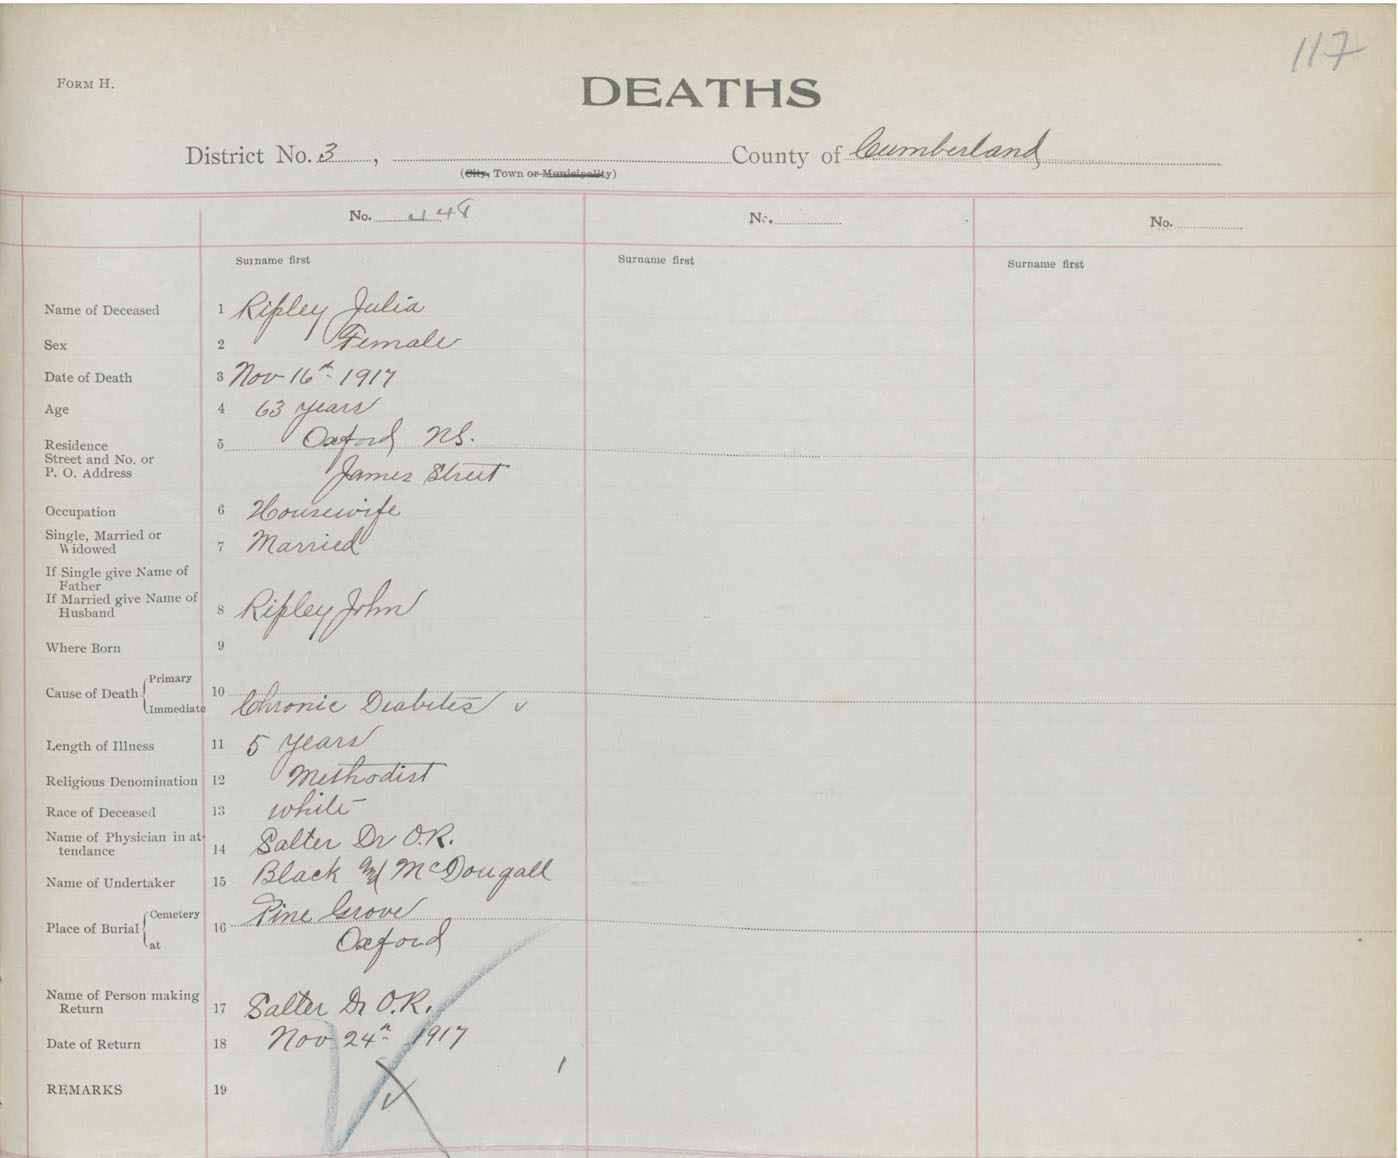 117
FORM H.
DEATHS
District No. 3, County of Cumberland
(City, Town or Municipality)
No. 48 No. No.
Surname first Surname first Surname first
Name of Deceased 1 Ripley Julia
Sex 2 Female
Date of Death 3 Nov 16th 1917
Age 4 63 years
Residence 5 Oxford NS.
Street and No. or
P. O. Address James Street
Occupation 6 Housewife
Single, Married or
Widowed 7 Married
If Single give Name of
Father
If Married give Name of
Husband 8 Ripley John
Where Born 9
Cause of Death { Primary 10
Immediate Chronic Diabetes ✓
Length of Illness 11 5 years
Religious Denomination 12 Methodist
Race of Deceased 13 white
Name of Physician in at-
tendance 14 Salter Dr O.R.
Name of Undertaker 15 Black and McDougall
Place of Burial { Cemetery 16 Pine Grove
at Oxford
Name of Person making
Return 17 Salter Dr O.R.
Date of Return 18 Nov 24th 1917
REMARKS 19